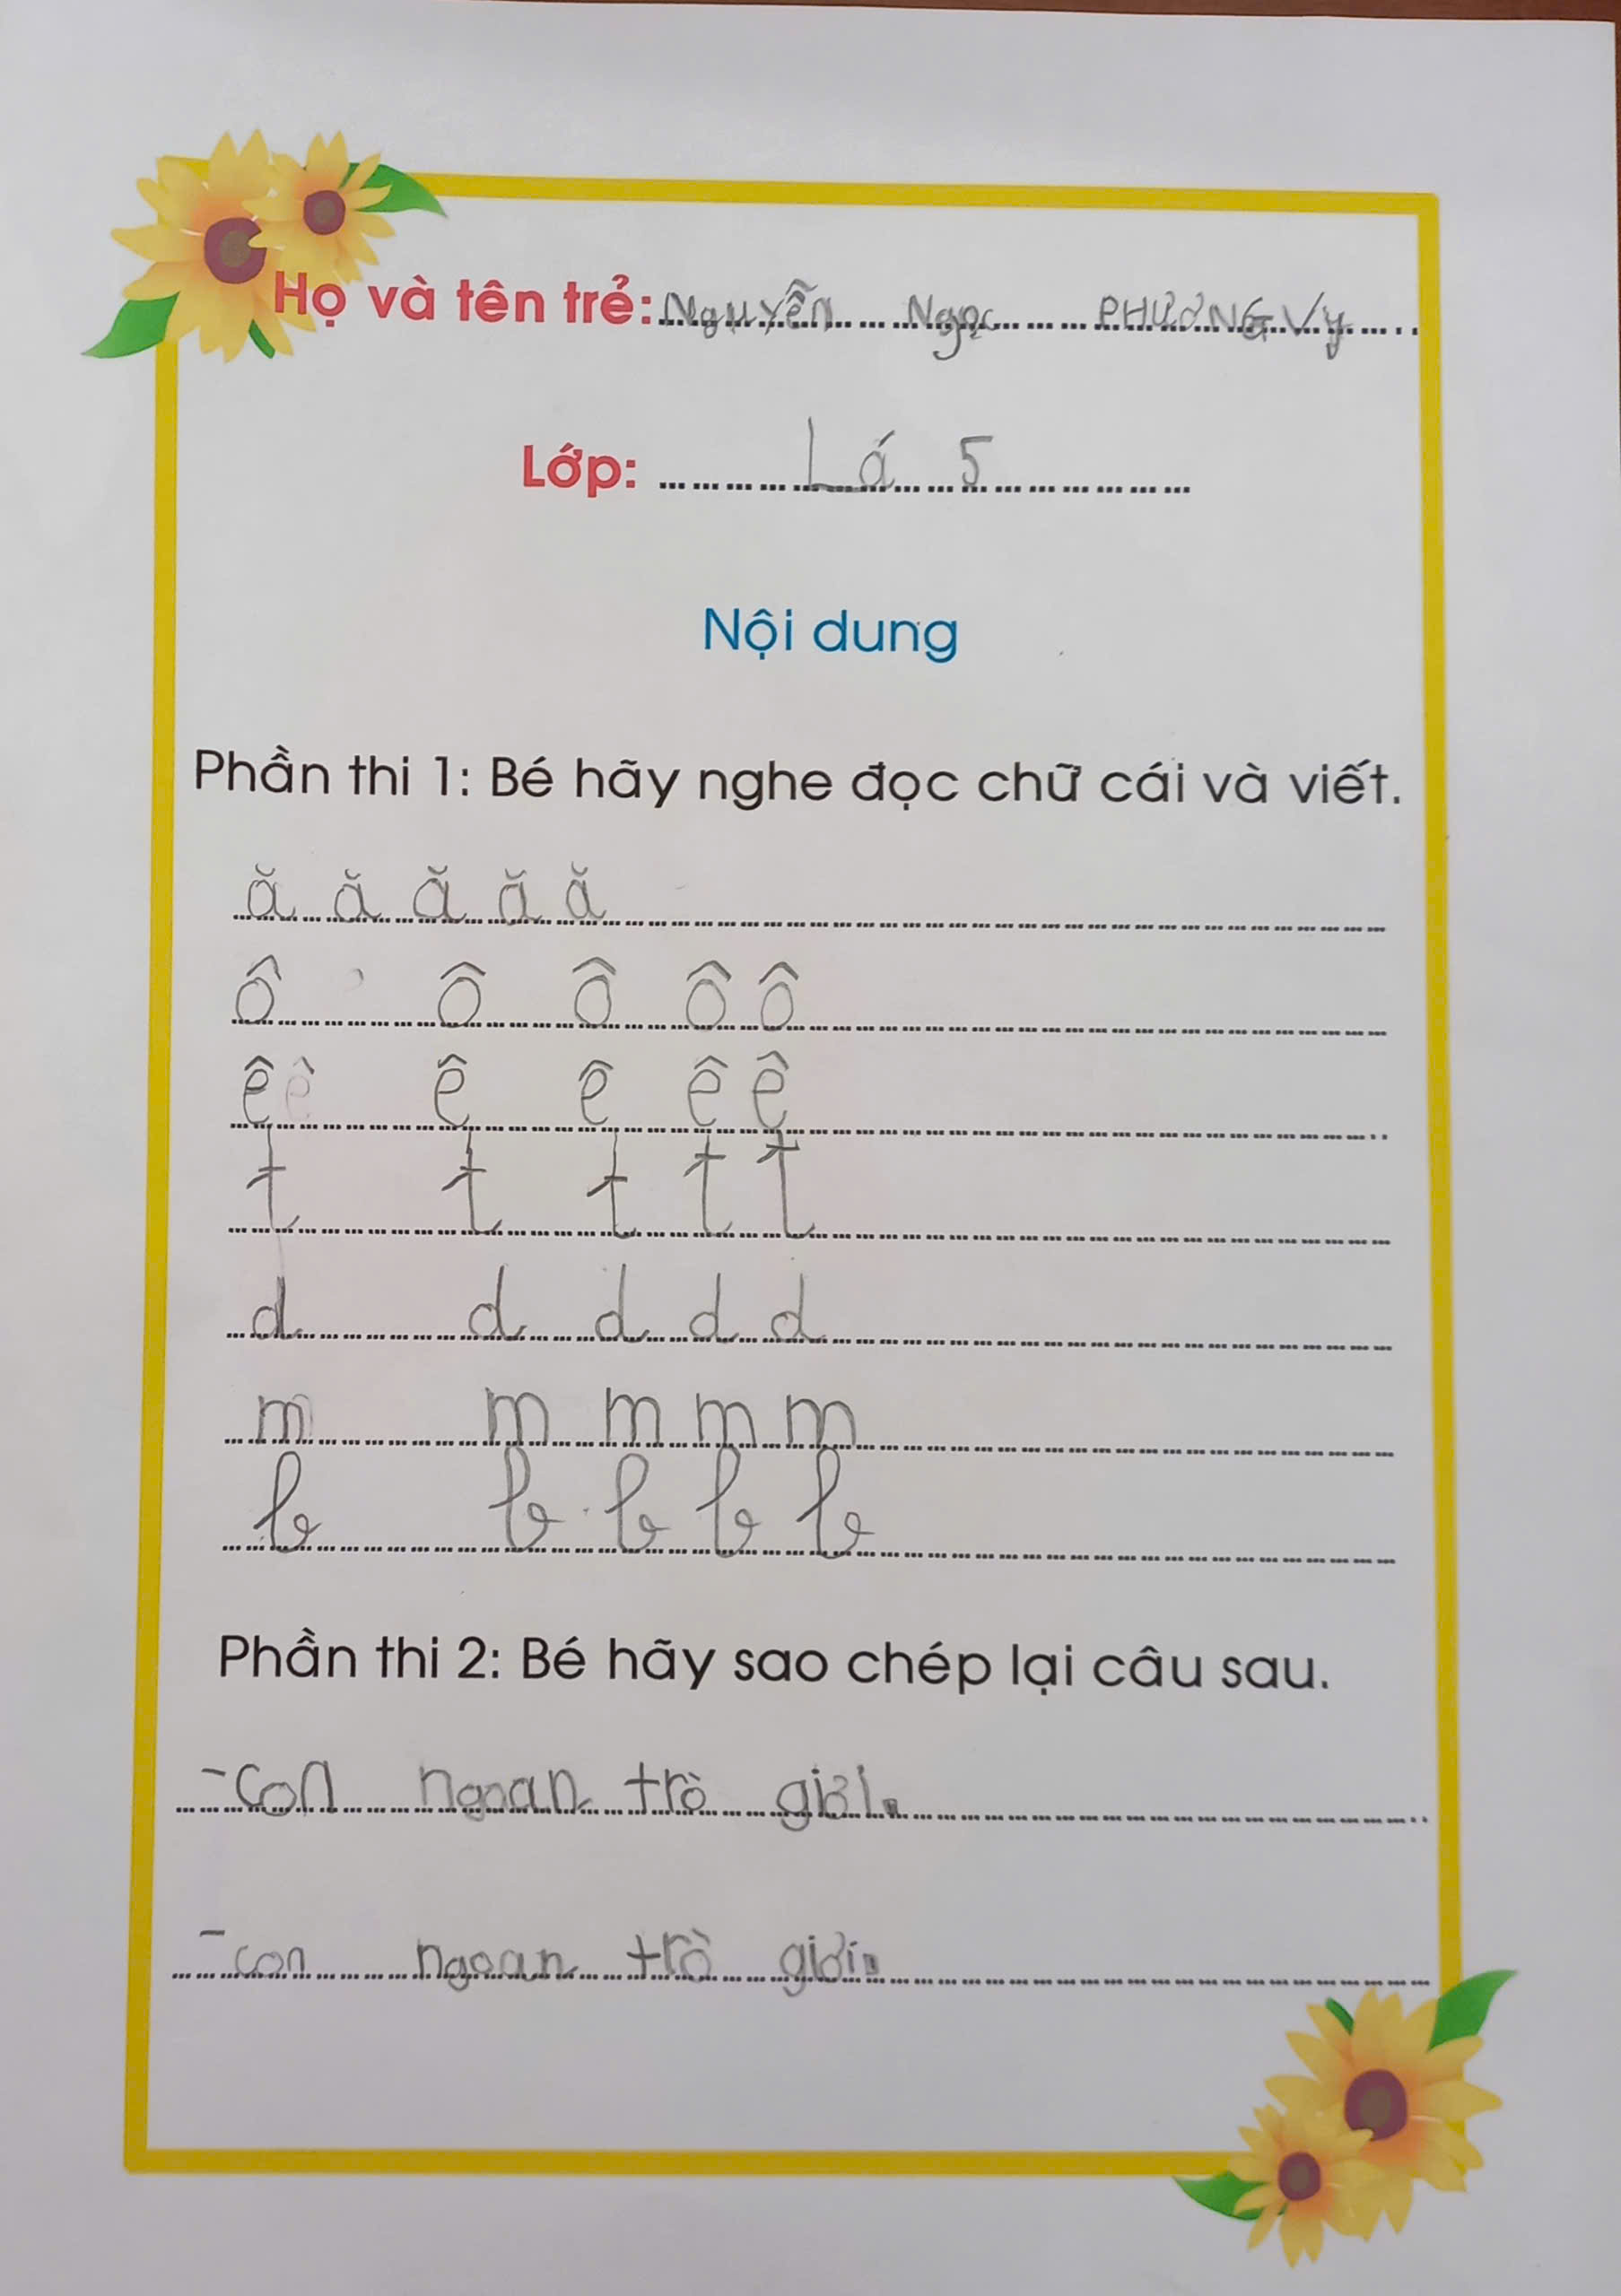 Họ và tên trẻ: Nguyễn Ngọc PHƯƠNG Vy
Lớp: Lá 5
Nội dung
Phần thi 1: Bé hãy nghe đọc chữ cái và viết.
ă ă ă ă ă
ô ô ô ô ô
ê ê ê ê ê ê
t t t t t
d d d d d
m m m m m
b b b b b
Phần thi 2: Bé hãy sao chép lại câu sau.
- con ngoan trò giỏi.
- con ngoan trò giỏi.